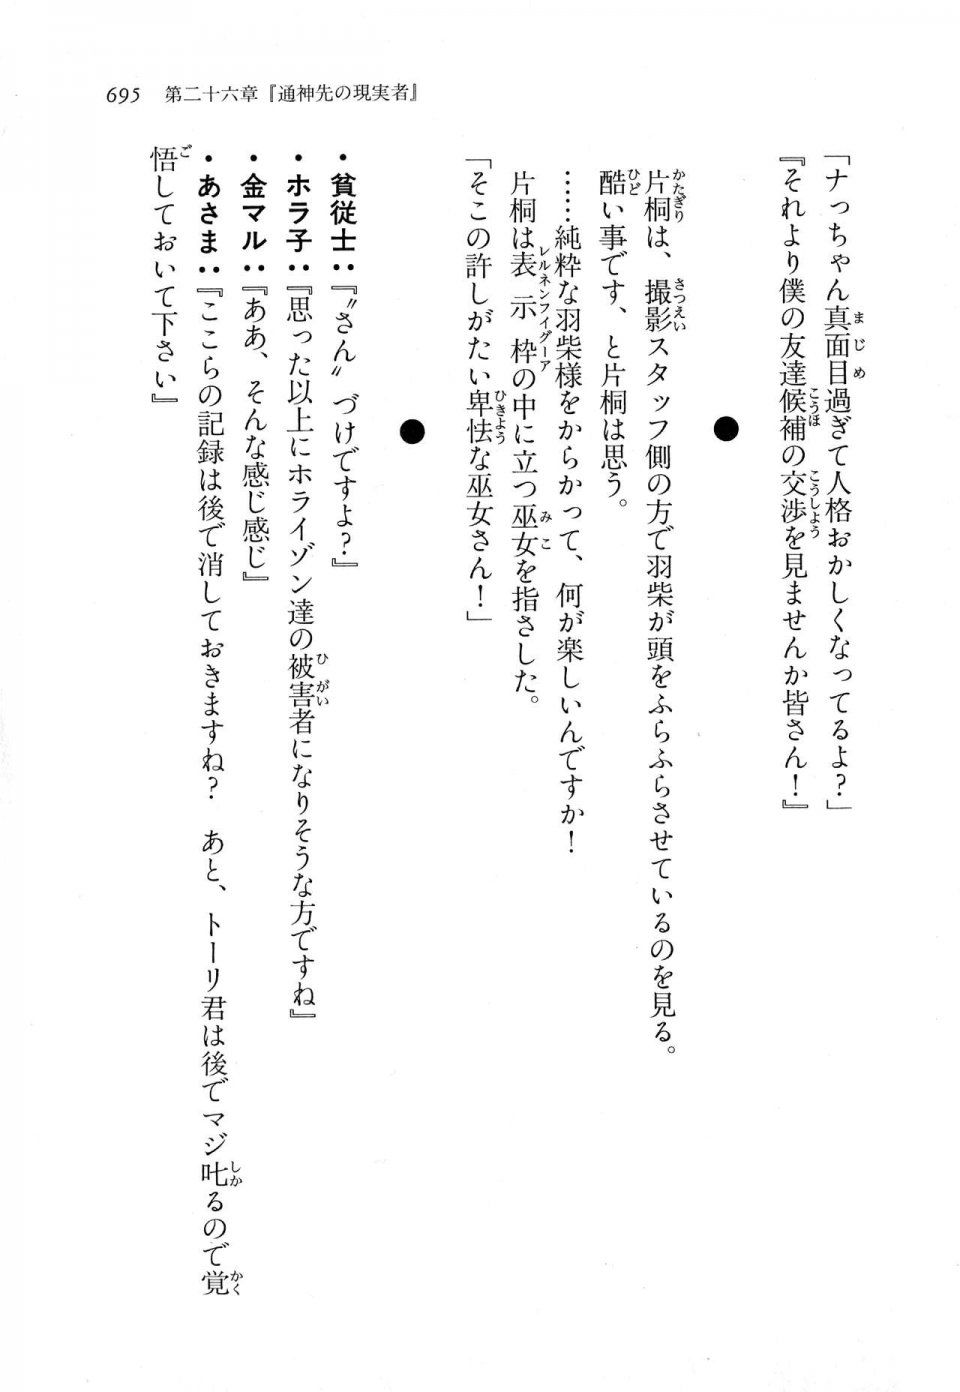 695　第二十六章『通神先の現実者』
「ナっちゃん真面目過ぎて人格おかしくなってるよ？」
『それより僕の友達候補の交渉を見ませんか皆さん！』
●
片桐は、撮影スタッフ側の方で羽柴が頭をふらふらさせているのを見る。
酷い事です、と片桐は思う。
……純粋な羽柴様をからかって、何が楽しいんですか！
片桐は表示枠の中に立つ巫女を指さした。
「そこの許しがたい卑怯な巫女さん！」
●
・貧従士：『〝さん〟づけですよ？』
・ホラ子：『思った以上にホライゾン達の被害者になりそうな方ですね』
・金マル：『ああ、そんな感じ感じ』
・あさま：『ここらの記録は後で消しておきますね？　あと、トーリ君は後でマジ叱るので覚
悟しておいて下さい』